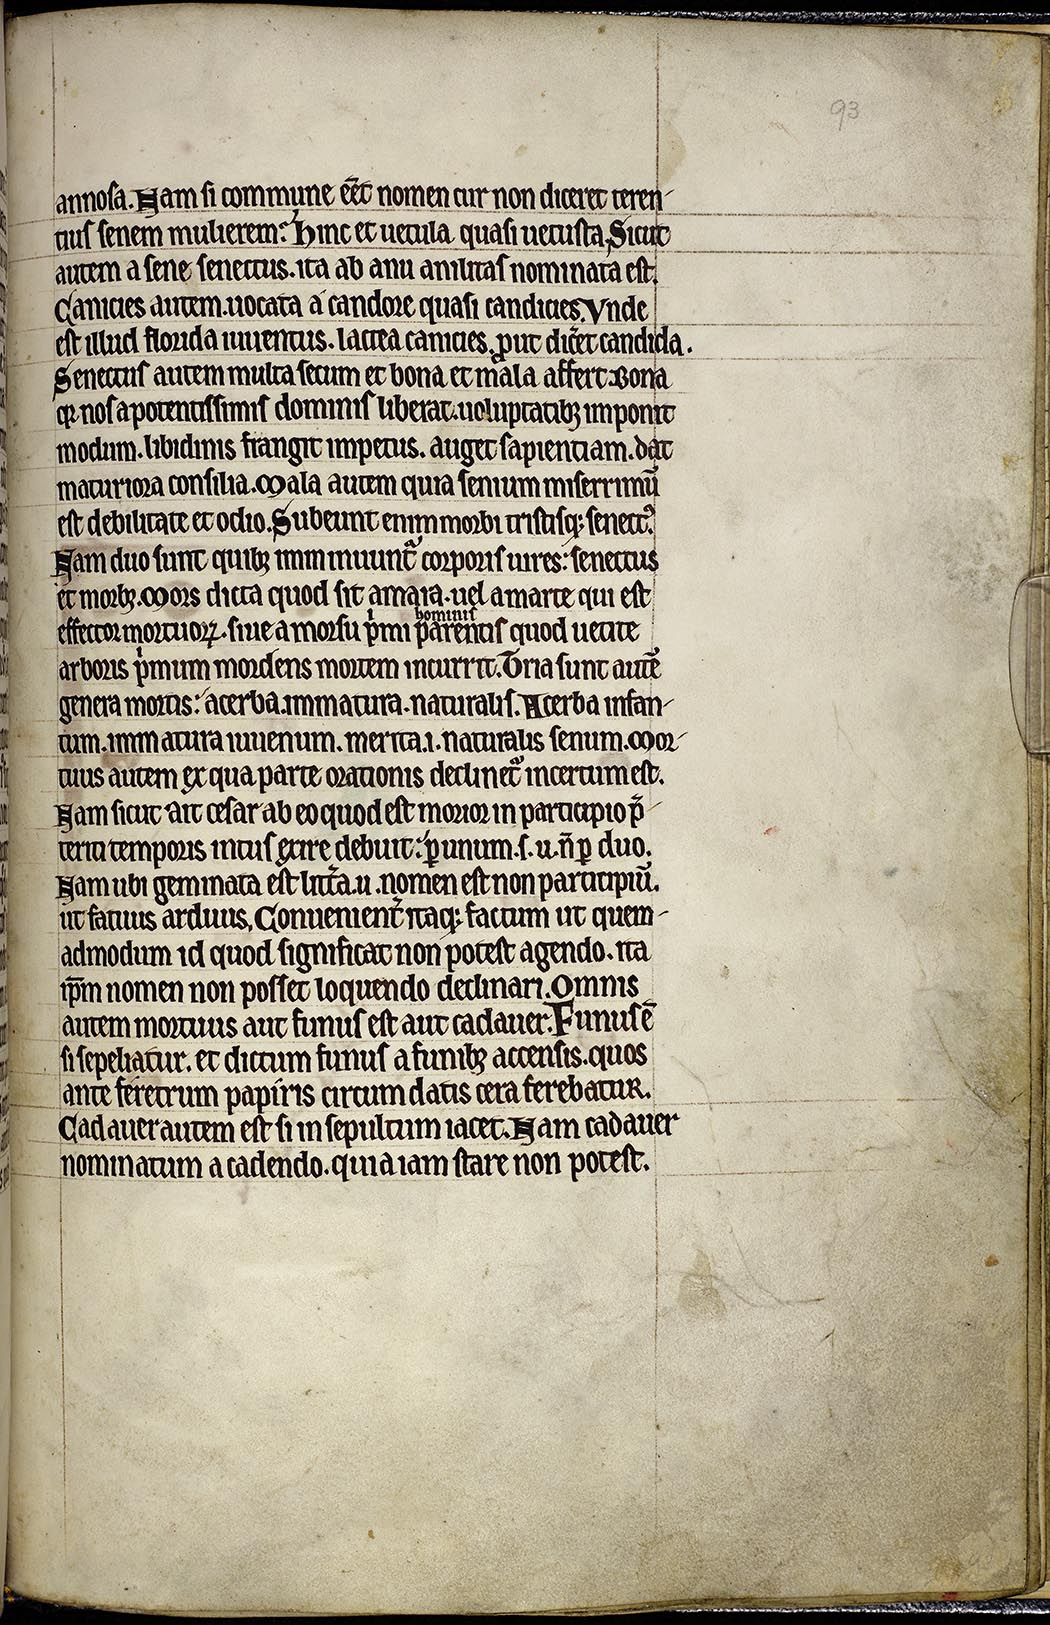 93
annosa. Nam si commune eēt nomen cur non diceret teren-
tius senem mulierem? hinc et uetula quasi uetusta, Sicut
autem a sene senectus. ita ab anu anilitas nominata est.
Canicies autem. uocata a candore quasi candicies. Vnde
est illud florida iuuentus. lactea canicies. ꝓut dic̄et candida.
Senectus autem multa secum et bona et mala affert. Bona
qꝛ nos a potentissimis dominis liberat. uoluptatibꝫ imponit
modum. libidinis frangit impetus. auget sapientiam. dat
maturiora consilia. Mala autem quia senium miserrimū
est debilitate et odio. Subeunt enim morbi tristisqꝫ senectꝰ.
Nam duo sunt quibꝫ imminuunt᷑ corporis uires: senectus
et morbꝫ. Mors dicta quod sit amara. uel a marte qui est
effector mortuoꝝ. siue a morsu pͥmi hominis parentis quod uetite
arboris pͥmum mordens mortem incurrit. Tria sunt autē
genera mortis: acerba. immatura. naturalis. Acerba infan-
tum. immatura iuuenum. merita .i. naturalis senum. Mor-
tuus autem ex qua parte orationis declinet᷑ incertum est.
Nam sicut ait cesar ab eo quod est morior in participio p̄-
teriti temporis intus exire debuit: ꝑ unum .s. u. n̄ ꝑ duo.
Nam ubi geminata est litt̄a .u. nomen est non participiū.
ut fatuus arduus, Conuenient᷑ itaqꝫ factum ut quem-
admodum id quod significat non potest agendo. ita
ip̄m nomen non posset loquendo declinari. Omnis
autem mortuus aut funus est aut cadauer. Funus ē
si sepeliatur. et dictum funus a funibꝫ accensis. quos
ante feretrum papiris circumdatis cera ferebatur.
Cadauer autem est si insepultum iacet. Nam cadauer
nominatum a cadendo. quia iam stare non potest.